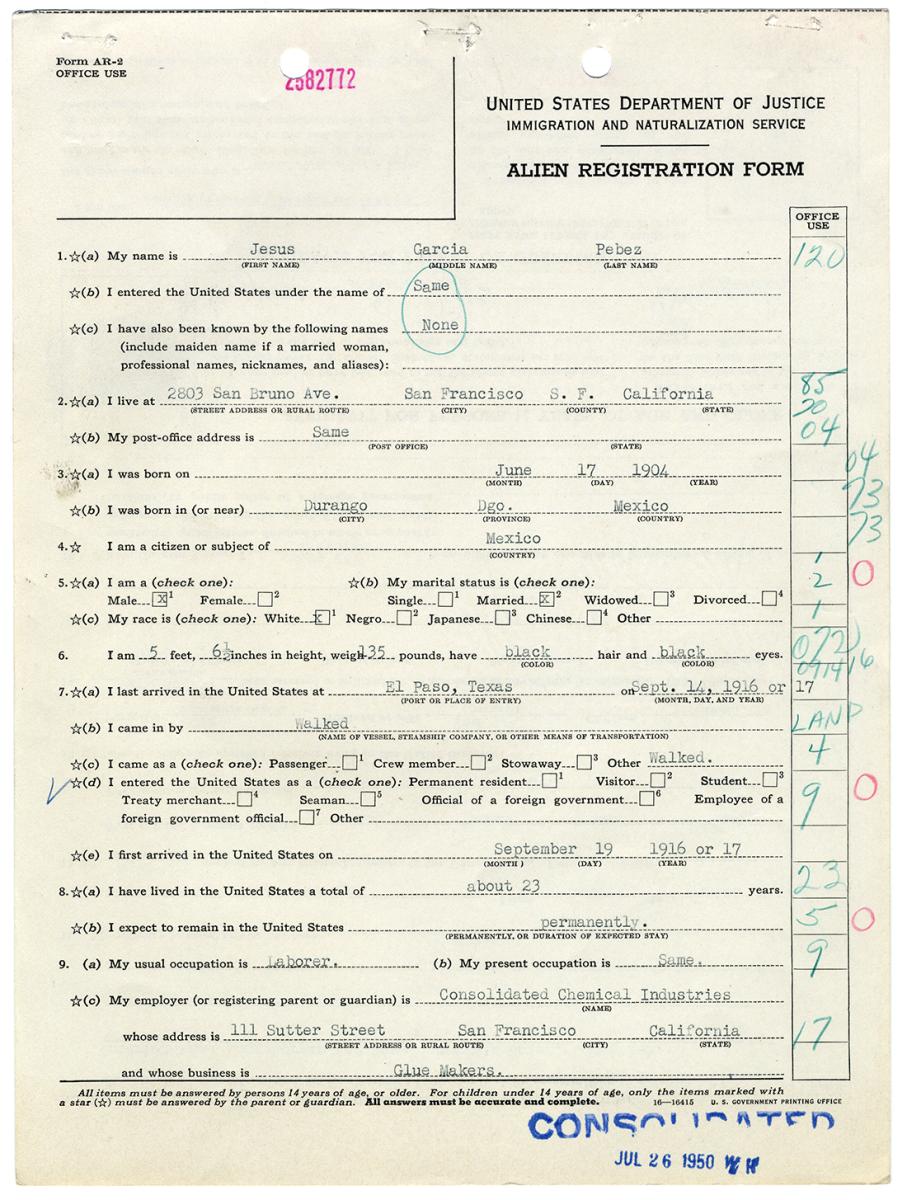 Form AR-2
OFFICE USE
2582772
UNITED STATES DEPARTMENT OF JUSTICE
IMMIGRATION AND NATURALIZATION SERVICE
ALIEN REGISTRATION FORM
OFFICE USE
1. ☆(a) My name is Jesus Garcia Pebez 120
(FIRST NAME) (MIDDLE NAME) (LAST NAME)
☆(b) I entered the United States under the name of Same
☆(c) I have also been known by the following names None
(include maiden name if a married woman,
professional names, nicknames, and aliases):
2. ☆(a) I live at 2803 San Bruno Ave. San Francisco S. F. California 85
(STREET ADDRESS OR RURAL ROUTE) (CITY) (COUNTY) (STATE) 20
☆(b) My post-office address is Same 04
(POST OFFICE) (STATE)
3. ☆(a) I was born on June 17 1904 04
(MONTH) (DAY) (YEAR) 73
☆(b) I was born in (or near) Durango Dgo. Mexico
(CITY) (PROVINCE) (COUNTRY) 73
4. ☆ I am a citizen or subject of Mexico
(COUNTRY) 1
5. ☆(a) I am a (check one): ☆(b) My marital status is (check one): 2 0
Male X 1 Female 2 Single 1 Married X 2 Widowed 3 Divorced 4
☆(c) My race is (check one): White X 1 Negro 2 Japanese 3 Chinese 4 Other 1
6. I am 5 feet, 6½ inches in height, weigh 135 pounds, have black hair and black eyes. 072
(COLOR) (COLOR) 091416
7. ☆(a) I last arrived in the United States at El Paso, Texas on Sept. 14, 1916 or 17
(PORT OR PLACE OF ENTRY) (MONTH, DAY, AND YEAR)
☆(b) I came in by Walked LAND
(NAME OF VESSEL, STEAMSHIP COMPANY, OR OTHER MEANS OF TRANSPORTATION)
☆(c) I came as a (check one): Passenger 1 Crew member 2 Stowaway 3 Other Walked. 4
☆(d) I entered the United States as a (check one): Permanent resident 1 Visitor 2 Student 3 9 0
Treaty merchant 4 Seaman 5 Official of a foreign government 6 Employee of a
foreign government official 7 Other
☆(e) I first arrived in the United States on September 19 1916 or 17
(MONTH) (DAY) (YEAR)
8. ☆(a) I have lived in the United States a total of about 23 years. 23
☆(b) I expect to remain in the United States permanently. 5 0
(PERMANENTLY, OR DURATION OF EXPECTED STAY)
9. (a) My usual occupation is Laborer. (b) My present occupation is Same. 9
☆(c) My employer (or registering parent or guardian) is Consolidated Chemical Industries
(NAME)
whose address is 111 Sutter Street San Francisco California 17
(STREET ADDRESS OR RURAL ROUTE) (CITY) (STATE)
and whose business is Glue Makers.
All items must be answered by persons 14 years of age, or older. For children under 14 years of age, only the items marked with
a star (☆) must be answered by the parent or guardian. All answers must be accurate and complete. 16—16415 U. S. GOVERNMENT PRINTING OFFICE
CONSOLIDATED
JUL 26 1950 WH